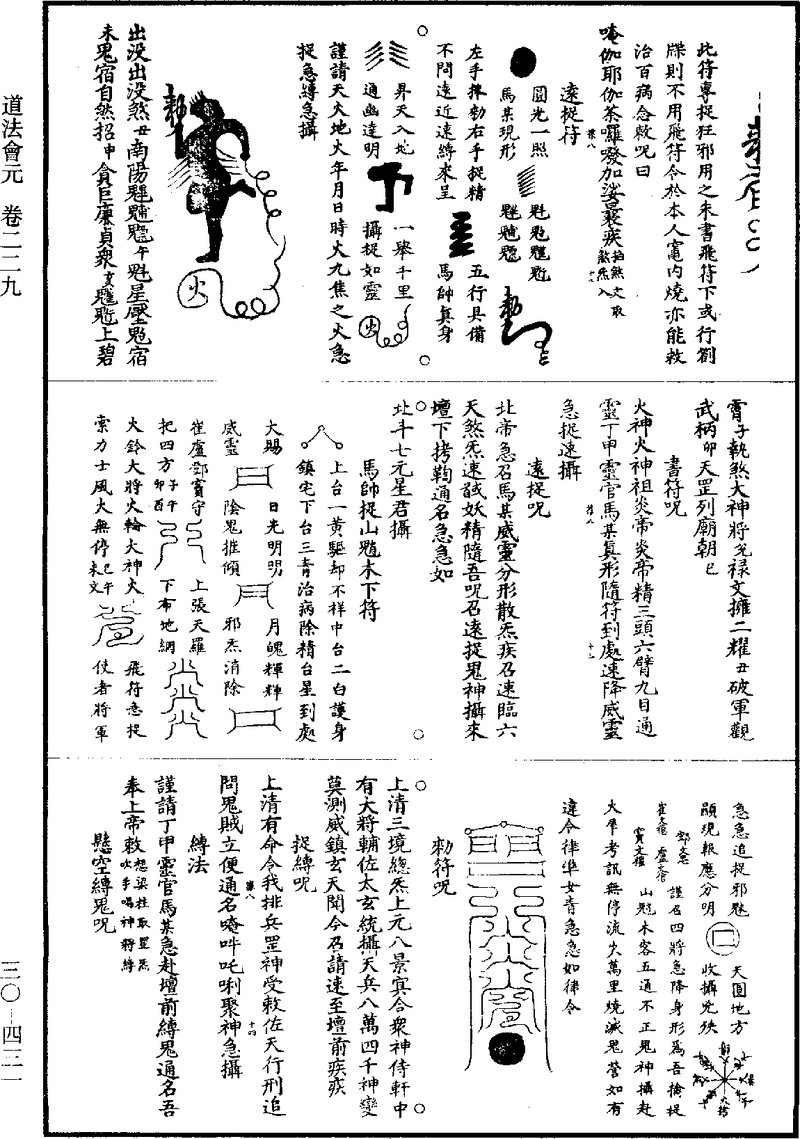 道法會元　卷二二九
三〇—四三一
此符專捉狂邪用之朱書飛符下或行劄
牒則不用飛符令於本人竈內燒亦能救
治百病念敕呪曰
唵伽耶伽茶囉發加娑曩疾
速捉符
圓光一照
馬杲現形
左手捧勅右手捉精
不問遠近速縛來呈
五行具備
馬帥真身
勅
昇天入地
通幽達明
一舉千里
攝捉如靈
火
謹請天火地火年月日時火九焦之火急
捉急縛急攝
勅
火
出沒出沒煞丑南陽午魁星壓鬼宿
未鬼宿自然招申貪巨廉貞眾亥上碧
霄子執煞大神將兇祿文擁二耀丑破軍觀
武柄卯天罡列廟朝巳
書符呪
火神火神祖炎帝炎帝精三頭六臂九目通
靈丁甲靈官馬某真形隨符到處速降威靈
急捉速攝
速捉呪
北帝急召馬某威靈分形散炁疾召速臨六
天煞炁速馘妖精隨吾呪召速捉鬼神攝來
壇下拷鞫通名急急如
北斗七元星君攝
馬帥捉山魈木下符
上台一黃驅却不祥中台二白護身
鎮宅下台三青治病除精台星到處
大賜
威靈
日光明明
陰鬼摧傾
月魄輝輝
邪炁消除
崔盧鄧竇守
把四方子午卯酉
上張天羅
下布地網
火鈴大將火輪大神火
索力士風火無停
飛符急捉
使者將軍
急急追捉邪魅
顯現報應分明
天圓地方
收攝兇殃
鄧文 崔文 盧文 竇文
謹召四將急降身形為吾擒捉
山魈木客五通不正鬼神攝赴
火牢考訊無停流火萬里燒滅鬼營如有
違令律準女青急急如律令
勅符呪
上清三境總炁上元八景冥合眾神侍軒中
有大將輔佐太玄統攝天兵八萬四千神變
莫測威鎮玄天聞今召請速至壇前疾疾
捉縛呪
上清有命令我排兵罡神受敕佐天行刑追
問鬼賊立便通名唵吽吒唎聚神急攝
縛法
謹請丁甲靈官馬某急赴壇前縛鬼通名吾
奉上帝敕想梁柱取罡炁吹手喝神將縛
懸空縛鬼呪